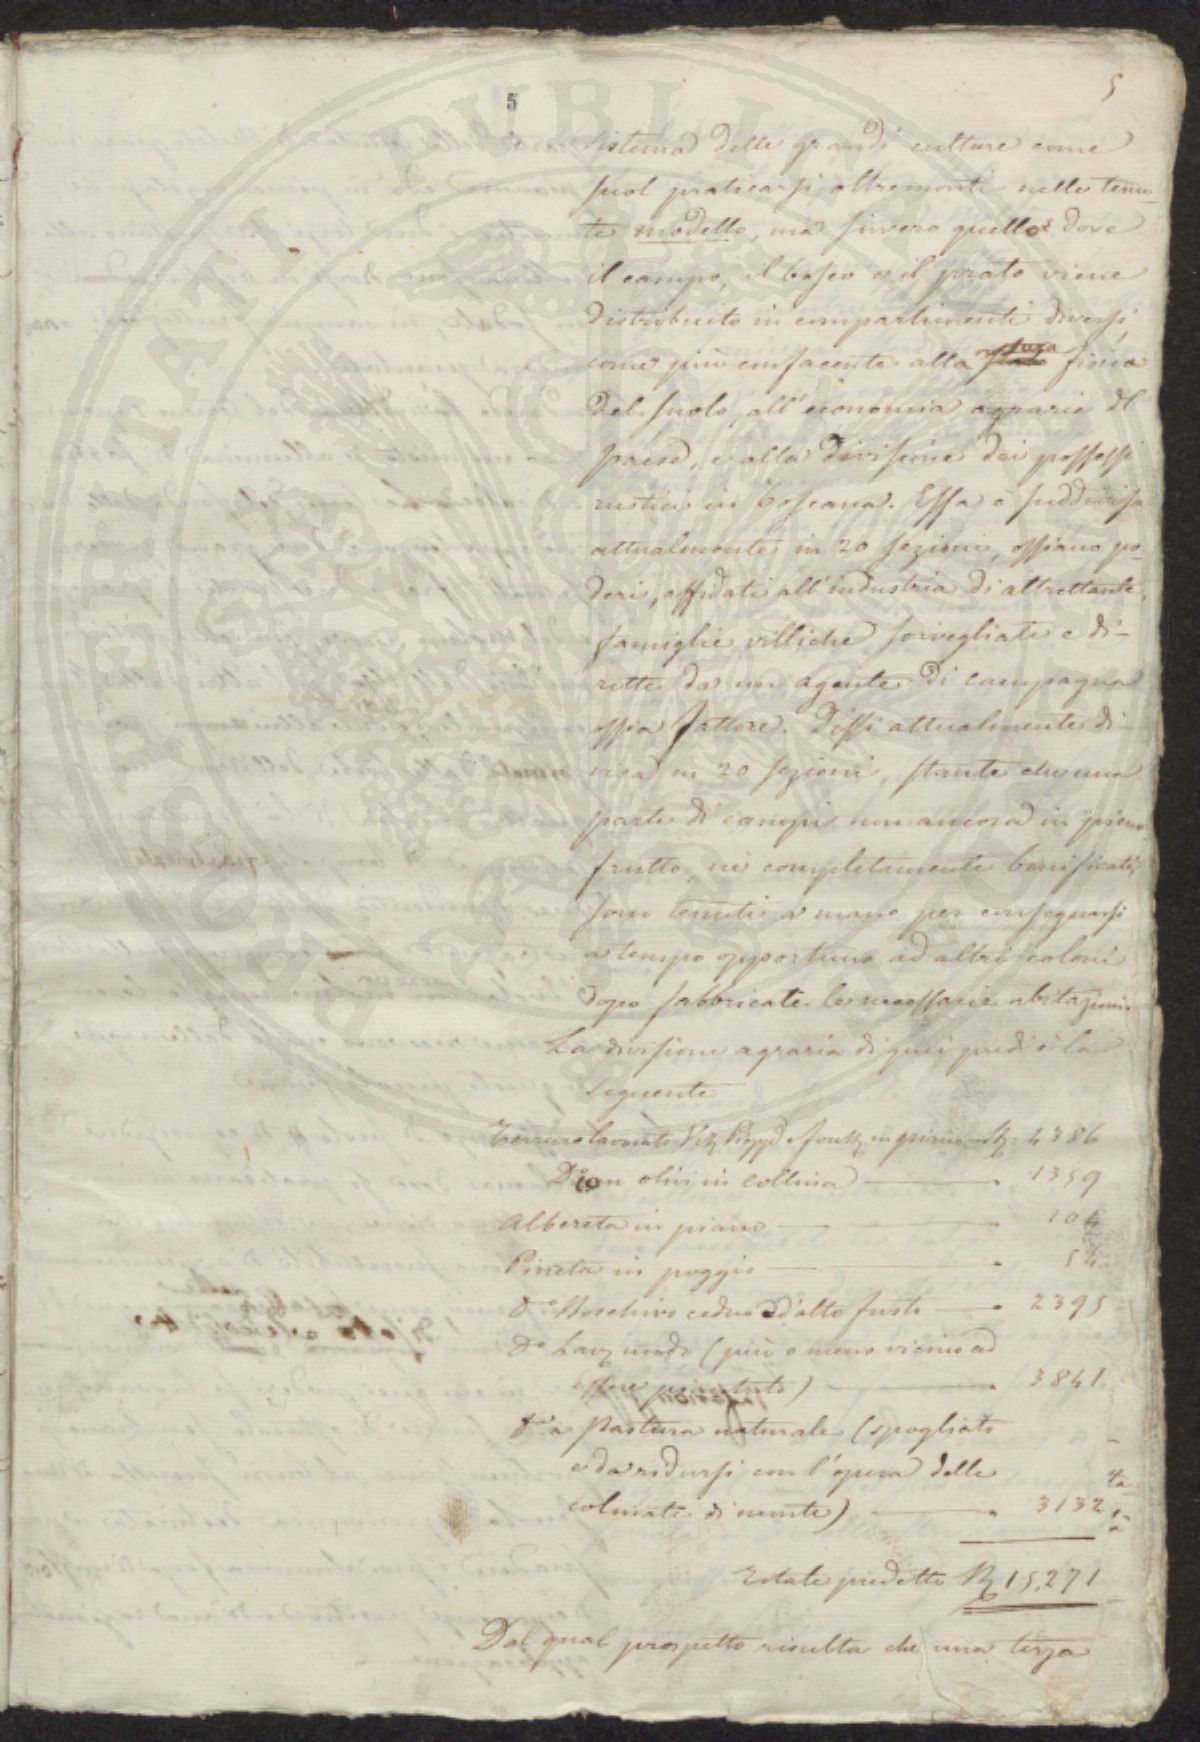 5
5
sistema delle grandi culture come
suol praticarsi oltremonti nelle tenu-
te modello, ma sivvero quello dove
il campo, il bosco e il prato viene
distribuito in compartimenti diversi,
come più confacente alla natura fisica
del suolo, all'economia agraria del
paese, e alla divisione dei possessi
rustici in Toscana. Essa è suddivisa
attualmente in 20 sezioni, ossiano po-
deri, affidati all'industria di altrettante
famiglie villiche sorvegliate e di-
rette da un agente di campagna
ossia fattore. Dissi attualmente di-
visa in 20 sezioni, stante che una
parte di campi non ancora in pieno
frutto, nè completamente bonificati,
sono tenuti a mano per consegnarsi
a tempo opportuno ad altri coloni
dopo fabbricate le necessarie abitazioni.
La divisione agraria di quei predi è la
seguente
Terreno lavorato in piano 4386
con olivi in collina 1359
Albereta in piano 104
Pineta in poggio 54
d.o Boschivo ceduo d'alto fusto 2395
d.o nudo (più o meno vicino ad
essere) 3841
d.o a Pastura naturale (spogliato
e da ridursi con l'opera delle
colmate di monte) 3132
Totale predetto 15,271
Dal qual prospetto risulta che una terza